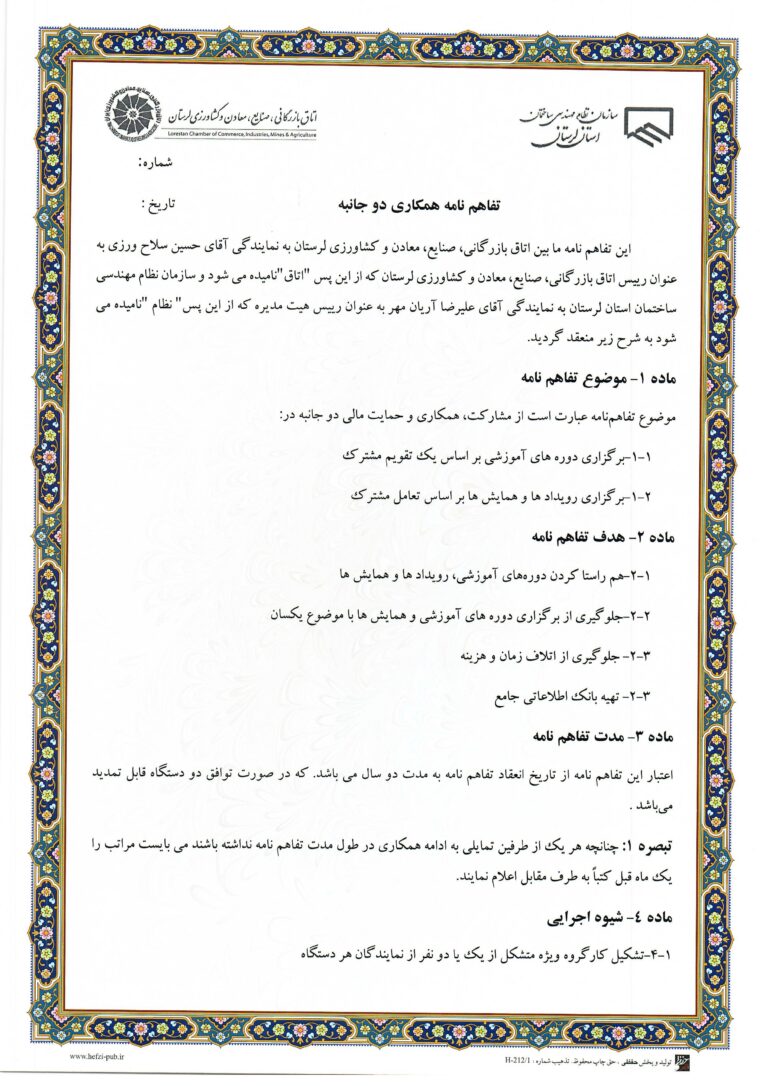 سازمان نظام مهندسی ساختمان
استان لرستان
اتاق بازرگانی، صنایع، معادن و کشاورزی لرستان
Lorestan Chamber of Commerce, Industries, Mines & Agriculture
شماره:
تاریخ :
تفاهم نامه همکاری دو جانبه
این تفاهم نامه ما بین اتاق بازرگانی، صنایع، معادن و کشاورزی لرستان به نمایندگی آقای حسین سلاح ورزی به
عنوان رییس اتاق بازرگانی، صنایع، معادن و کشاورزی لرستان که از این پس "اتاق"نامیده می شود و سازمان نظام مهندسی
ساختمان استان لرستان به نمایندگی آقای علیرضا آریان مهر به عنوان رییس هیت مدیره که از این پس" نظام "نامیده می
شود به شرح زیر منعقد گردید.
ماده ۱- موضوع تفاهم نامه
موضوع تفاهم‌نامه عبارت است از مشارکت، همکاری و حمایت مالی دو جانبه در:
۱-۱-برگزاری دوره های آموزشی بر اساس یک تقویم مشترک
۱-۲-برگزاری رویداد ها و همایش ها بر اساس تعامل مشترک
ماده ۲- هدف تفاهم نامه
۲-۱-هم راستا کردن دوره‌های آموزشی، رویداد ها و همایش ها
۲-۲-جلوگیری از برگزاری دوره های آموزشی و همایش ها با موضوع یکسان
۲-۳- جلوگیری از اتلاف زمان و هزینه
۲-۳- تهیه بانک اطلاعاتی جامع
ماده ۳- مدت تفاهم نامه
اعتبار این تفاهم نامه از تاریخ انعقاد تفاهم نامه به مدت دو سال می باشد. که در صورت توافق دو دستگاه قابل تمدید
می‌باشد .
تبصره ۱: چنانچه هر یک از طرفین تمایلی به ادامه همکاری در طول مدت تفاهم نامه نداشته باشند می بایست مراتب را
یک ماه قبل کتباً به طرف مقابل اعلام نمایند.
ماده ٤- شیوه اجرایی
۴-۱-تشکیل کارگروه ویژه متشکل از یک یا دو نفر از نمایندگان هر دستگاه
تولید و پخش حفظی ، حق چاپ محفوظ. تذهیب شماره : H-212/1
www.hefzi-pub.ir